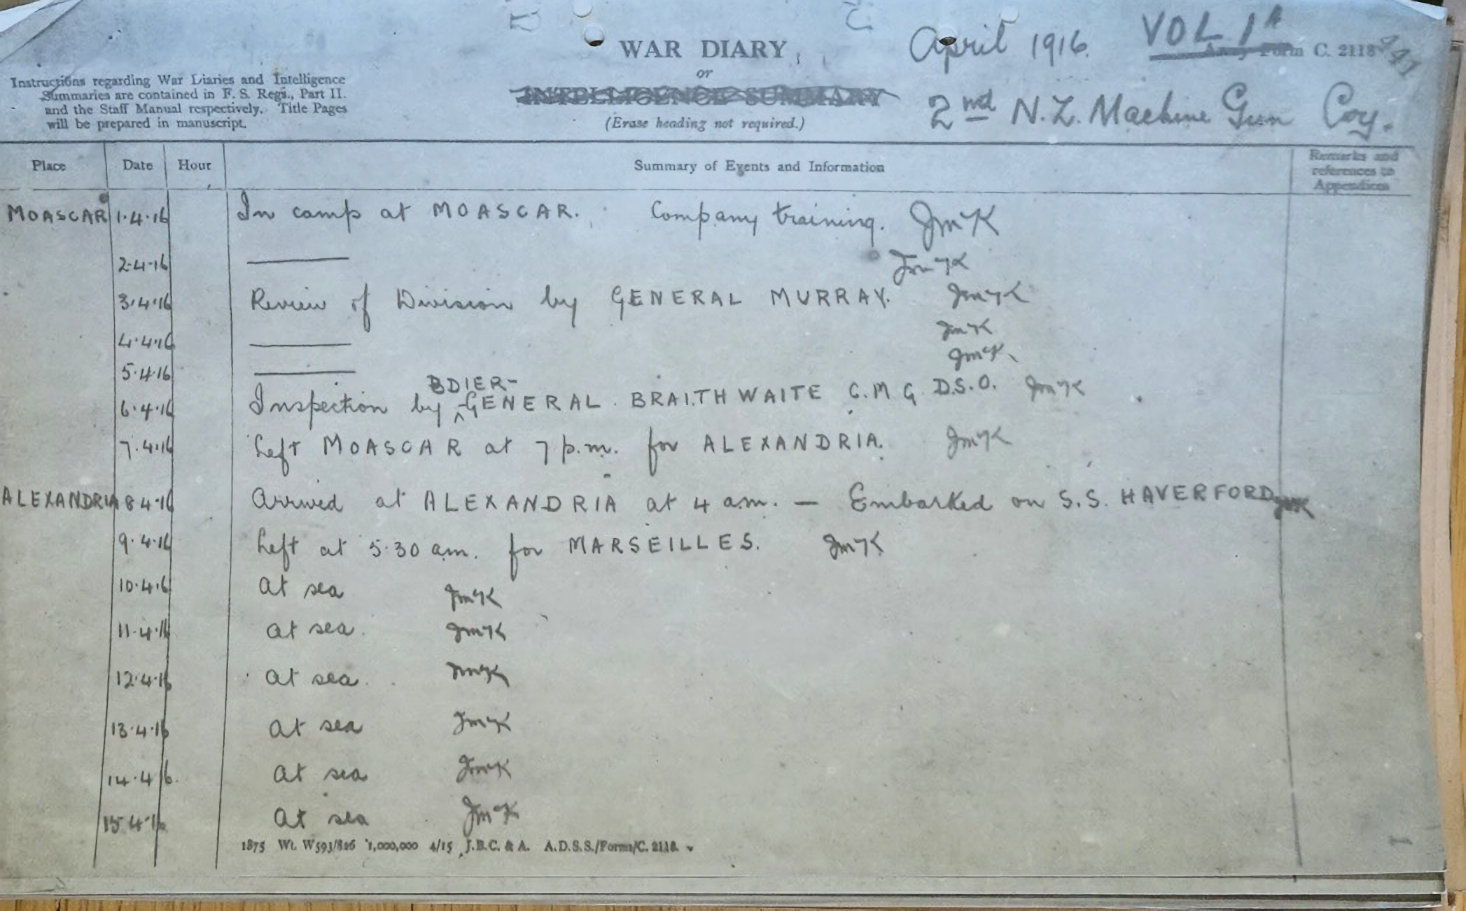 April 1916. VOL 1A
WAR DIARY, Army Form C. 2118
or
Instructions regarding War Diaries and Intelligence
Summaries are contained in F. S. Regs., Part II.
and the Staff Manual respectively. Title Pages
will be prepared in manuscript.
INTELLIGENCE SUMMARY
(Erase heading not required.)
2nd N.Z. Machine Gun Coy.
Place Date Hour Summary of Events and Information Remarks and
references to
Appendices
MOASCAR 1.4.16 In camp at MOASCAR. Company training. JMK
2.4.16 ——— JMK
3.4.16 Review of Division by GENERAL MURRAY. JMK
4.4.16 ——— JMK
5.4.16 ——— JMK
BDIER-
6.4.16 Inspection by ^GENERAL BRAITHWAITE C.M.G. D.S.O. JMK
7.4.16 Left MOASCAR at 7 p.m. for ALEXANDRIA. JMK
ALEXANDRIA 8.4.16 Arrived at ALEXANDRIA at 4 a.m. — Embarked on S.S. HAVERFORD JMK
9.4.16 Left at 5.30 am. for MARSEILLES. JMK
10.4.16 at sea JMK
11.4.16 at sea. JMK
12.4.16 at sea. JMK
13.4.16 at sea JMK
14.4.16. at sea JMK
15.4.16 at sea JMK
1875 Wt. W593/826 1,000,000 4/15 J.B.C. & A. A.D.S.S./Forms/C. 2118.